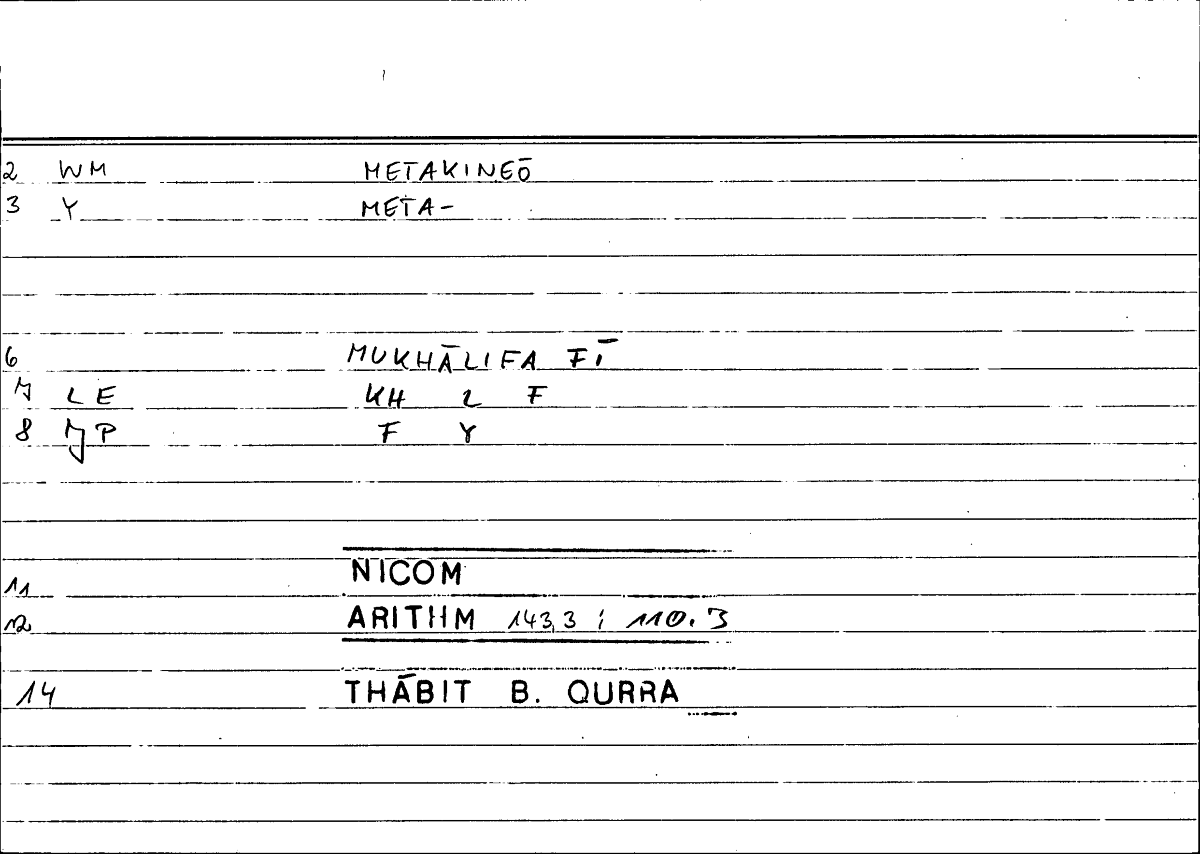 2 WM METAKINEŌ
3 Y META-
6 MUKHĀLIFA FĪ
7 LE KH L F
8 JP F Y
11 NICOM
12 ARITHM 143,3 ; 110.3
14 THĀBIT B. QURRA